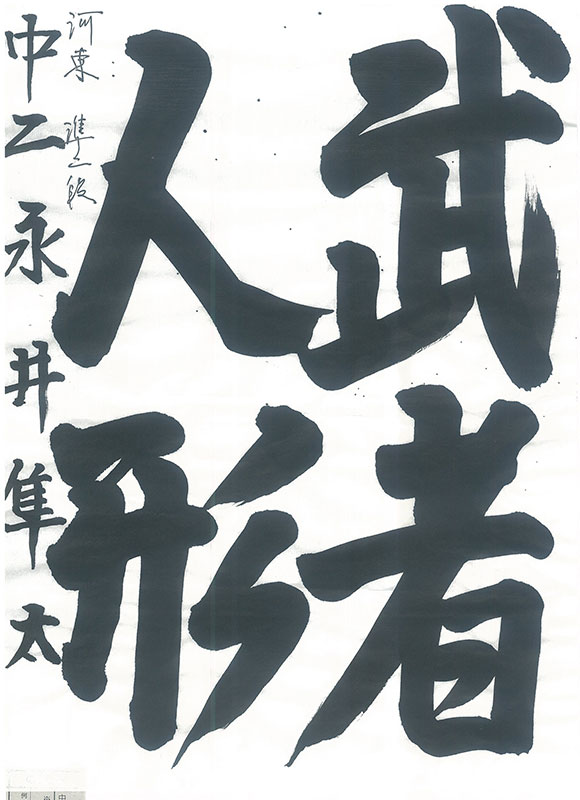 武者
人形
河東 準二段
中二 永井隼太